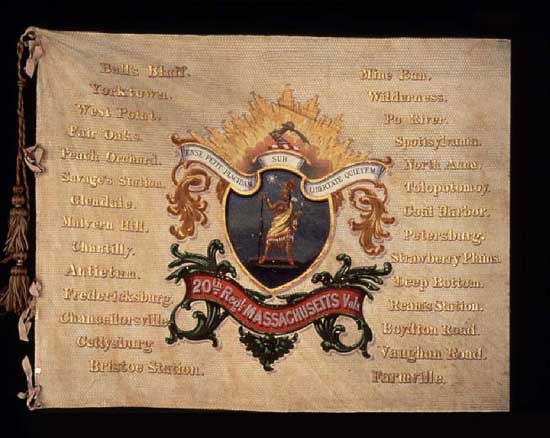 Ball's Bluff.
Yorktown.
West Point.
Fair Oaks.
Peach Orchard.
Savage's Station.
Glendale.
Malvern Hill.
Chantilly.
Antietam.
Fredericksburg
Chancellorsville
Gettysburg
Bristoe Station.
ENSE PETIT PLACIDAM
SUB
LIBERTATE QUIETEM
20th Regt MASSACHUSETTS Vols
Mine Run.
Wilderness.
Po River.
Spottsylvania.
North Anna.
Tolopotomoy.
Coal Harbor.
Petersburg.
Strawberry Plains.
Deep Bottom.
Ream's Station.
Boydton Road.
Vaughan Road.
Farmville.